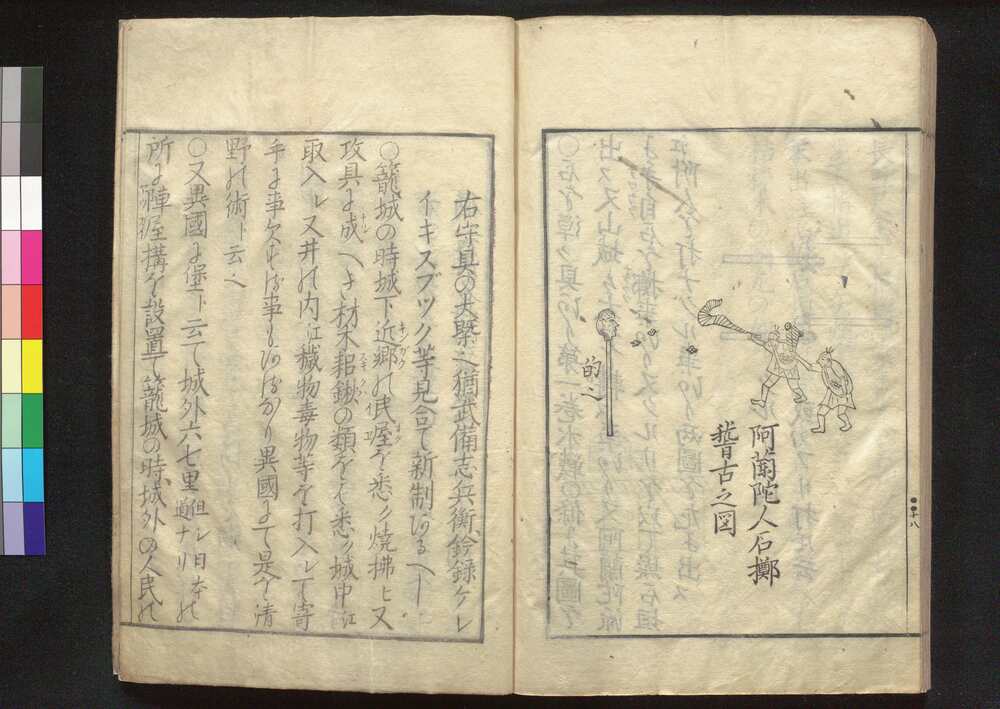 阿蘭陀人石擲
稽古之図
的之
十八
右守具の大槩之猶武備志兵衡鈐録ケレ
イキスブック等見合て新制〆るへし
〇籠城の時城下近郷の民屋を悉ク焼拂ヒ又
攻具に成へき材木鋤鍬の類をも悉ク城中江
取入レ又井の内江穢物毒物等を打入レて寄
手に事欠する事も
異國にて是を清
野の術ト云へ
〇又異國に堡ト云て城外六七里
但シ日本の
道ナリ
所に陣屋構を設置て籠城の時城外の人民の